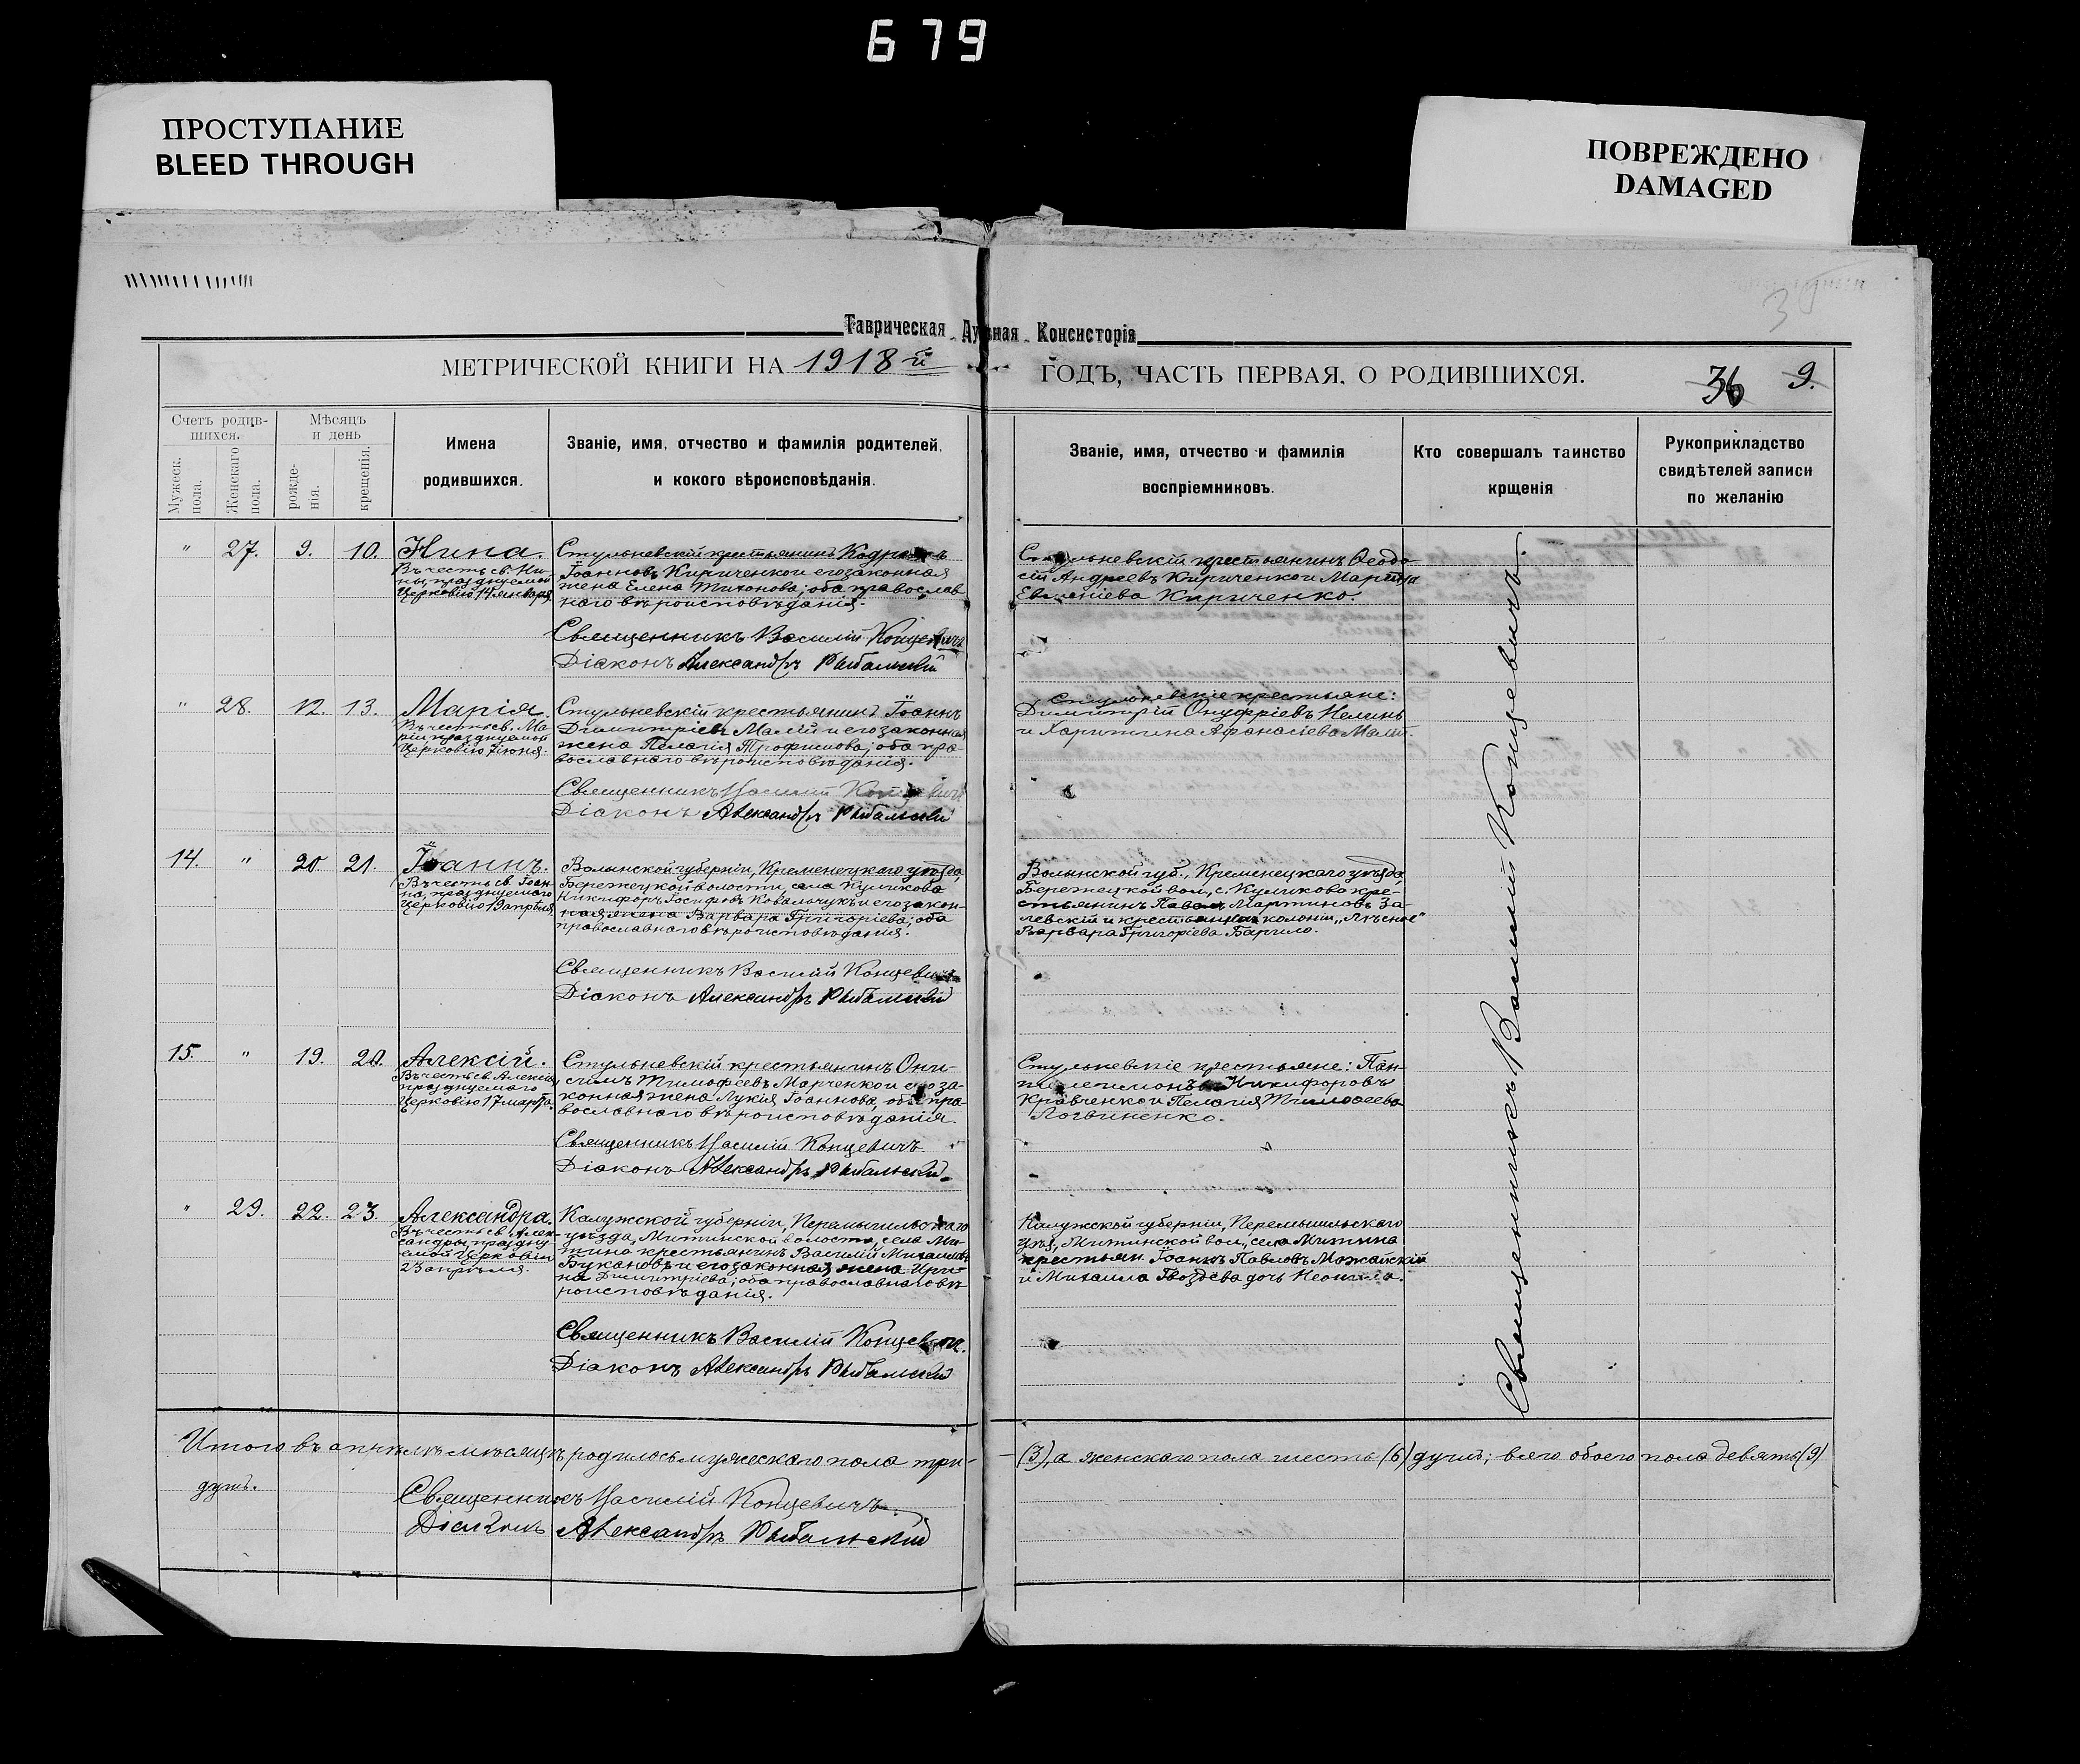 679
ПРОСТУПАНИЕ
BLEED THROUGH
ПОВРЕЖДЕНО
DAMAGED
Таврическая Духовная Консисторія
МЕТРИЧЕСКОЙ КНИГИ НА 1918й
ГОДЪ, ЧАСТЬ ПЕРВАЯ. О РОДИВШИХСЯ.
36 9.
Счетъ родив-
шихся.
Мужеск.
пола.
Женскаго
пола.
Мѣсяцъ
и день
рожде-
нія.
крещенія.
Имена
родившихся.
Званіе, имя, отчество и фамилія родителей,
и кокого вѣроисповѣданія.
Званіе, имя, отчество и фамилія
воспріемниковъ.
Кто совершалъ таинство
крщенія
Рукоприкладство
свидѣтелей записи
по желанію
" 27. 9. 10. Нина.
Въ честь св. Ни-
ны, празднуемой
Церковію 14 января
Стульневскій крестьянинъ
Іоанновъ Кириченко и его законная
жена Елена Тихонова; оба православ
наго вѣроисповѣданія.
Священникъ Василій Концевичъ
Діаконъ Александръ Рыбальскій
Стульневскій крестьянинъ Ѳеодо-
сій Андреевъ Кириченко и Марѳина
Евгеніева Кириченко.
" 28. 12. 13. Марія.
Въ честь св. Ма-
ріи, празднуемой
Церковію іюня.
Стульневскій крестьянинъ Іоаннъ
Димитріевъ Малій и его законная
жена Пелагія Трофимова; оба пра-
вославнаго вѣроисповѣданія.
Священникъ Василій Концевичъ
Діаконъ Александръ Рыбальскій
Стульневскіе крестьяне:
Димитрій Онуфріевъ Нелинъ
и Харитина Афанасіева Малій.
14. " 20 21. Іоаннъ.
Въ честь св. Іоан-
на, празднуемаго
Церковію 19 апрѣля.
Волынской губерніи, Кременецкаго уѣзда,
Бережецкой волости, села Куликова
Никифоръ Іосифовъ Ковальчукъ и его закон-
ная жена Варвара Григоріева; оба
православнаго вѣроисповѣданія.
Священникъ Василій Концевичъ
Діаконъ Александръ Рыбальскій
Волынской губ., Кременецкаго уѣзда,
Бережецкой вол., с. Куликово кре-
стьянинъ Павелъ Мартиновъ За-
левскій и крестьянка колоніи
Варвара Григоріева Барило.
15. " 19. 20. Алексій.
Въ честь св. Алексія,
празднуемаго
Церковію 17 марта.
Стульневскій крестьянинъ Они-
симъ Тимофеевъ Марченко и его за-
конная жена Лукія Іоаннова, оба пра-
вославнаго вѣроисповѣданія.
Священникъ Василій Концевичъ.
Діаконъ Александръ Рыбальскій
Стульневскіе крестьяне: Пан-
телеимонъ Никифоровъ
Кравченко и Пелагія Тимоѳеева
Логвиненко.
" 29. 22. 23. Александра.
Въ честь св. Алек-
сандры, праздну-
емой Церковію
23 апрѣля.
Калужской губерніи, Перемышльскаго
уѣзда, Митинской волости, села Ми-
тина крестьянинъ Василій Михаиловъ
Букановъ и его законная жена Ири-
на Димитріева; оба православнаго вѣ-
роисповѣданія.
Священникъ Василій Концевичъ.
Діаконъ Александръ Рыбальскій
Калужской губерніи, Перемышльскаго
уѣз., Митинской вол., села Митина
крестьян. Іоаннъ Павловъ Можайскій
и Михаила Гвоздева дочь Неонила.
Священникъ Василій Концевичъ.
Итого въ апрѣлѣ мѣсяцѣ родилось мужескаго пола три- (3), а женскаго пола шесть (6) душъ; всего обоего пола девять (9)
душъ.
Священникъ Василій Концевичъ.
Діаконъ Александръ Рыбальскій